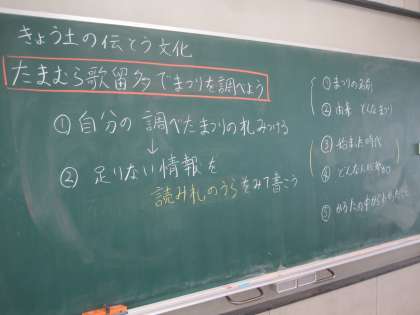 きょう土の伝とう文化
たまむら歌留多でまつりを調べよう
① 自分の 調べたまつりの札みつける
↓
② 足りない情報を
読み札のうらをみて書こう
① まつりの名前
② 由来 どんなまつり
③ 始まった時代
④ どんな
⑤ かるたの中から